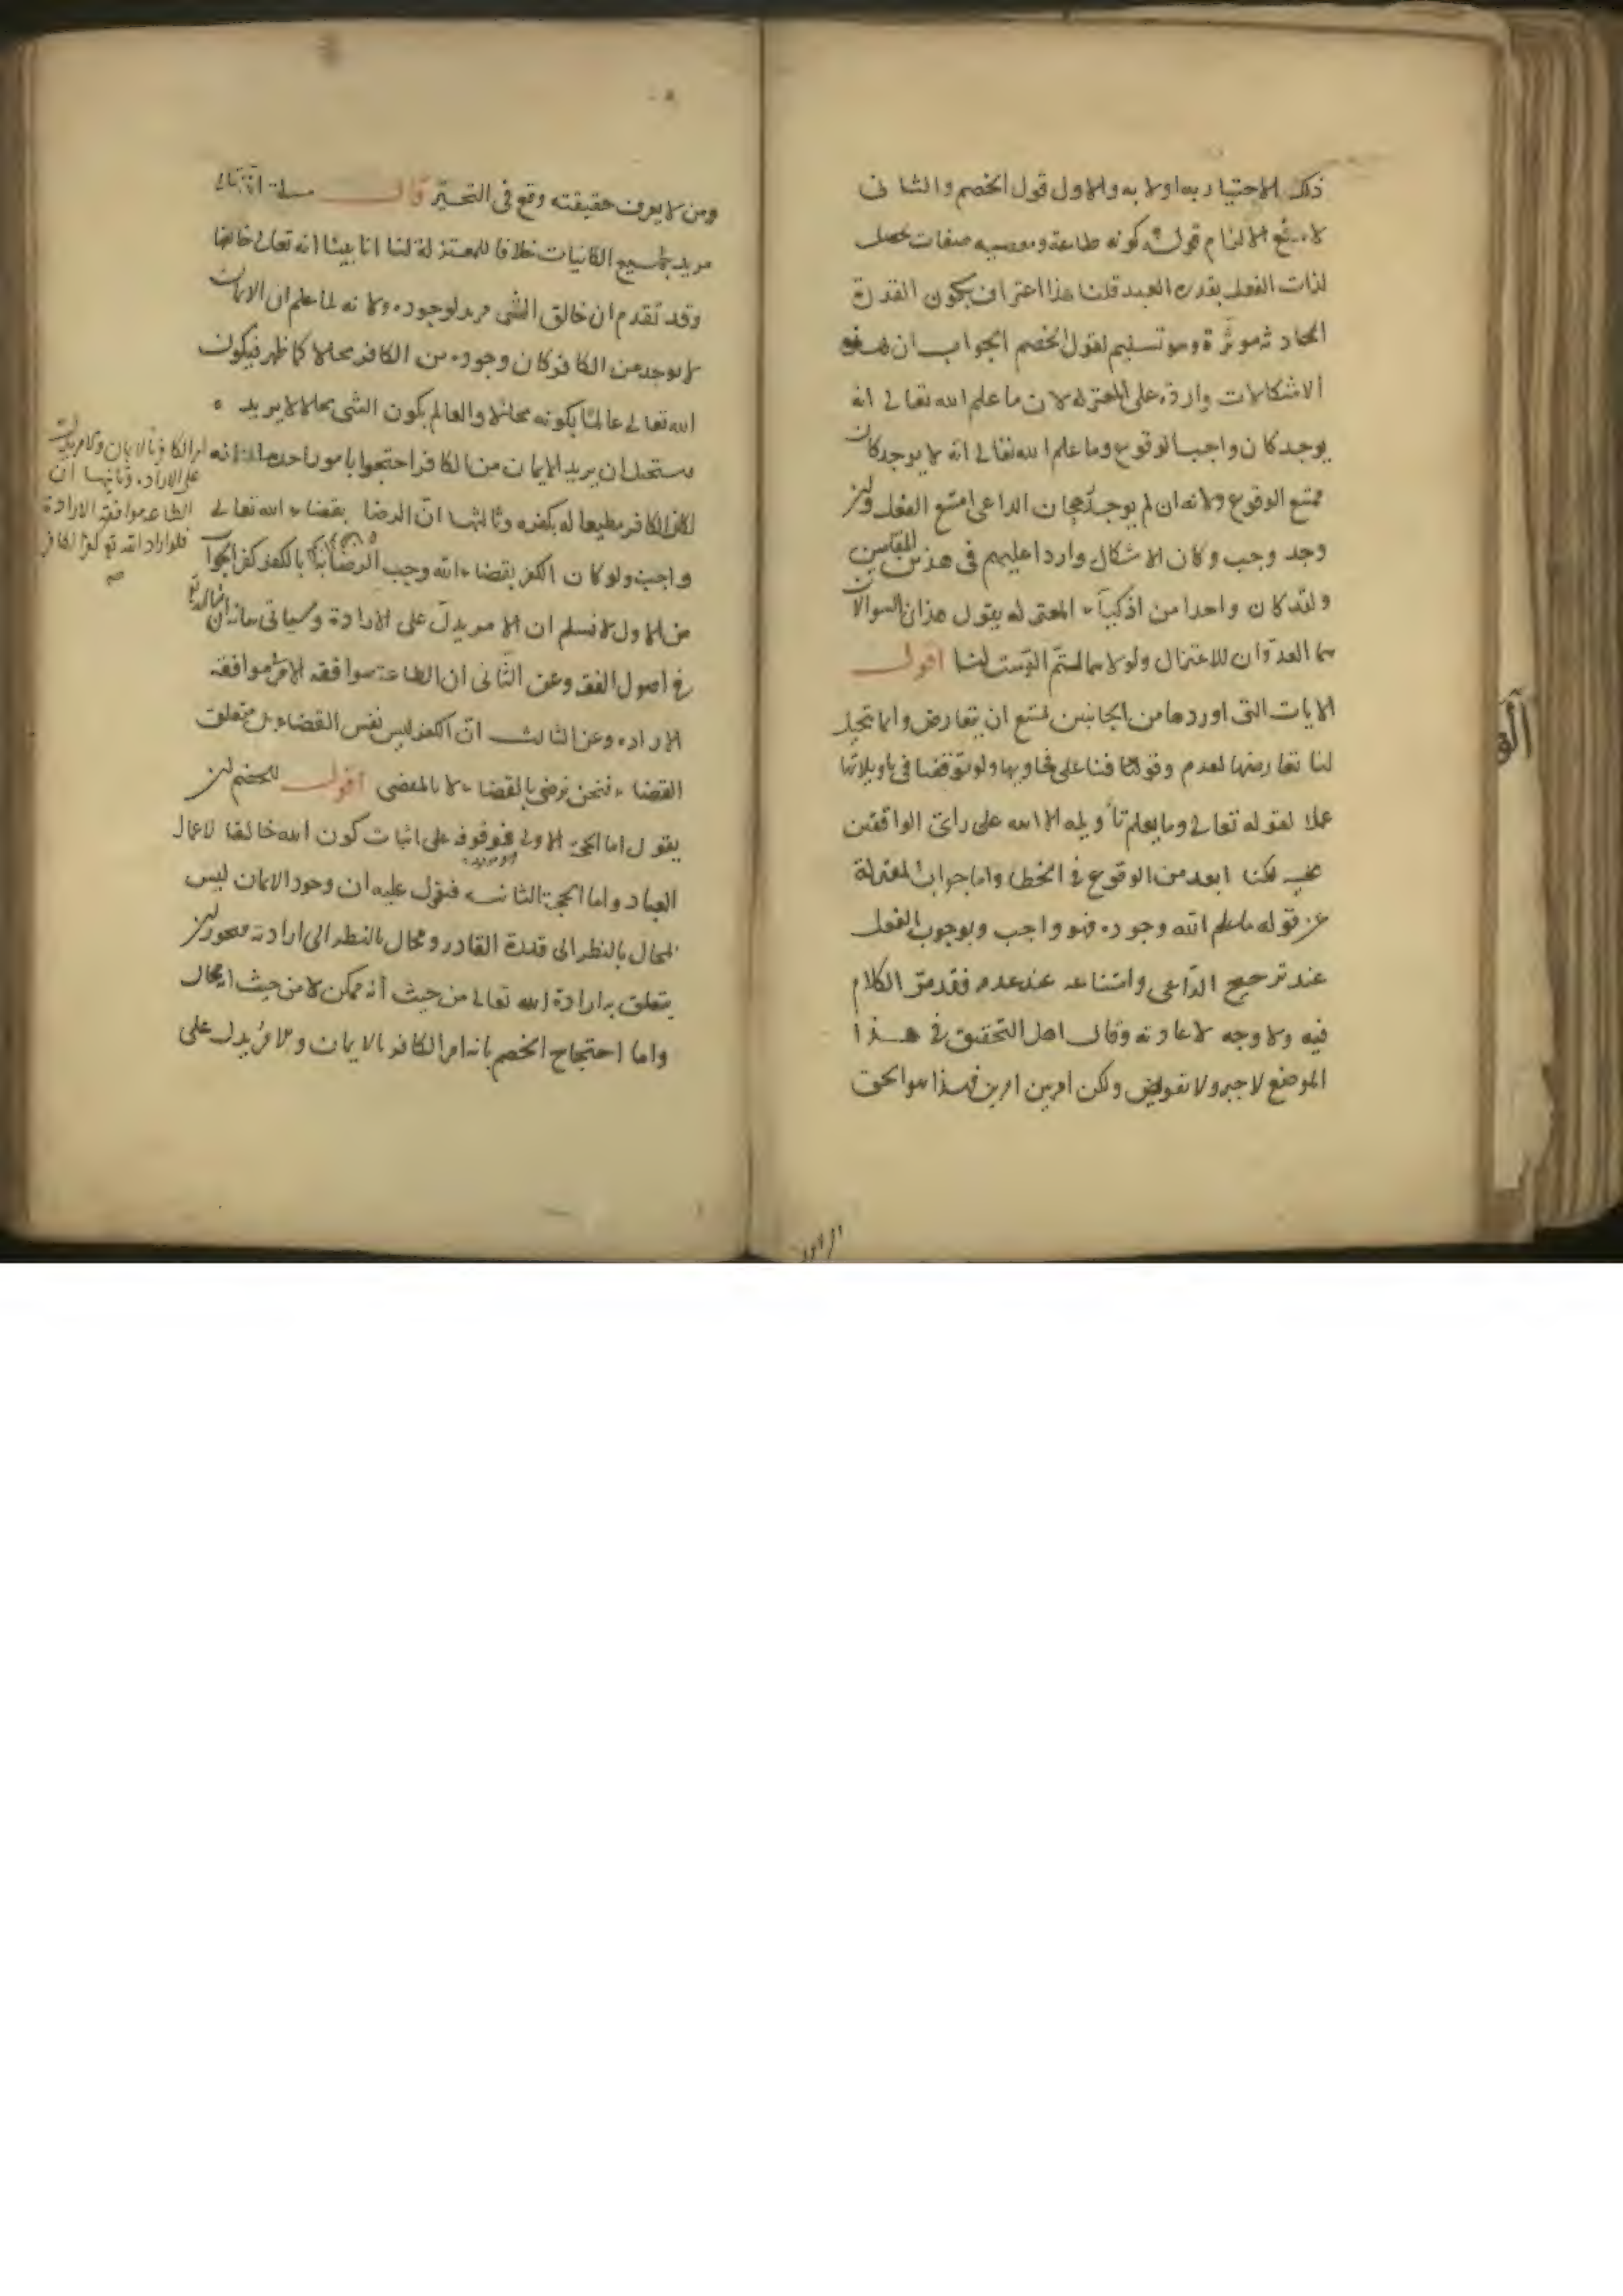 ذلك الاختيار به اولا به والاول قول الخصم والثانى
لا يدفع الالزام قوله كونه طاعة ومعصيه صفات تحصل
لذات الفعل بقدرة العبد قلنا هذا اعتراف بكون القدرة
الحادثة موثرة وهو تسليم لقول الخصم الجواب ان هذه
الاشكالات واردة على المعتزله لان ما علم الله تعالى انه
يوجد كان واجب الوقوع وما علم الله تعالى انه لا يوجد كان
ممتنع الوقوع ولانه ان لم يوجد رجحان الداعى امتنع الفعل وان
وجد وجب وكان الاشكال واردا عليهم فى هذين المقامين
ولقد كان واحدا من اذكياء المعتزله يقول هذان السوالان
هما العدوّان للاعتزال ولولاهما لتمّ الدست لنا اقول
الايات التى اوردها من الجانبين يمتنع ان يتعارض وانما يتخيل
لنا تعارضها لعدم وقوفنا على فحاويها ولو توقفنا فى تاويلاتها
عملا لقوله تعالى وما يعلم تأويله الا الله على راى الواقفين
عليه لكنا ابعد من الوقوع فى الخطا واما جواب المعتزلة
عن قوله ما علم الله وجوده فهو واجب وبوجوب الفعل
عند ترجيح الدّاعى وامتناعه عند عدمه فقد مرّ الكلام
فيه ولا وجه لاعادته وقال اهل التحقيق فى هذا
الموضع لا جبر ولا تفويض ولكن امر بين امرين فهذا هو الحق
ومن لا يعرف حقيقته وقع فى التحيّر قال مسلة انه تعالى
مريد لجميع الكائنات خلافا للمعتزلة لنا انا بينا انه تعالى خالقها
وقد تقدم ان خالق الشى مريد لوجوده ولانه لما علم ان الايمان
لا يوجد من الكافر كان وجوده من الكافر محالا كما ظهر فيكون
الله تعالى عالمًا بكونه محالا والعالم بكون الشى محالا لا يريده
فيستحيل ان يريد الايمان من الكافر احتجوا بامور احدها انه
امر الكافر بالايمان والامر يدل
على الارادة وثانيها ان
الطاعه موافقة الارادة
فلو اراد الله تع كفر الكافر
صح
لكان الكافر مطيعا له بكفره وثالثها انّ الرضا بقضاء الله تعالى
واجب ولو كان الكفر بقضاء الله وجب الرضا به لكن الرضا بالكفر كفر الجواب
عن الاول لا نسلم ان الامر يدلّ على الارادة وسياتى بيانه ان شا الله تع
فى اصول الفقه وعن الثّانى ان الطاعة موافقة الامر لا موافقة
الاراده وعن الثالث انّ الكفر ليس نفس القضاء بل متعلق
القضاء فنحن نرضى بالقضاء لا بالمقضى اقول للخصم ان
يقول اما الحجة الاولى فموقوفه على اثبات كون الله خالقا لاعمال
العباد واما الحجة الثانيه فيقول عليه ان وجود الايمان ليس
بمحال بالنظر الى قدرة القادر ومحال بالنظر الى ارادته فيجوز ان
يتعلق به ارادة الله تعالى من حيث أنه ممكن لا من حيث انه محال
واما احتجاج الخصم بانه امر الكافر بالايمان والامر يدل على